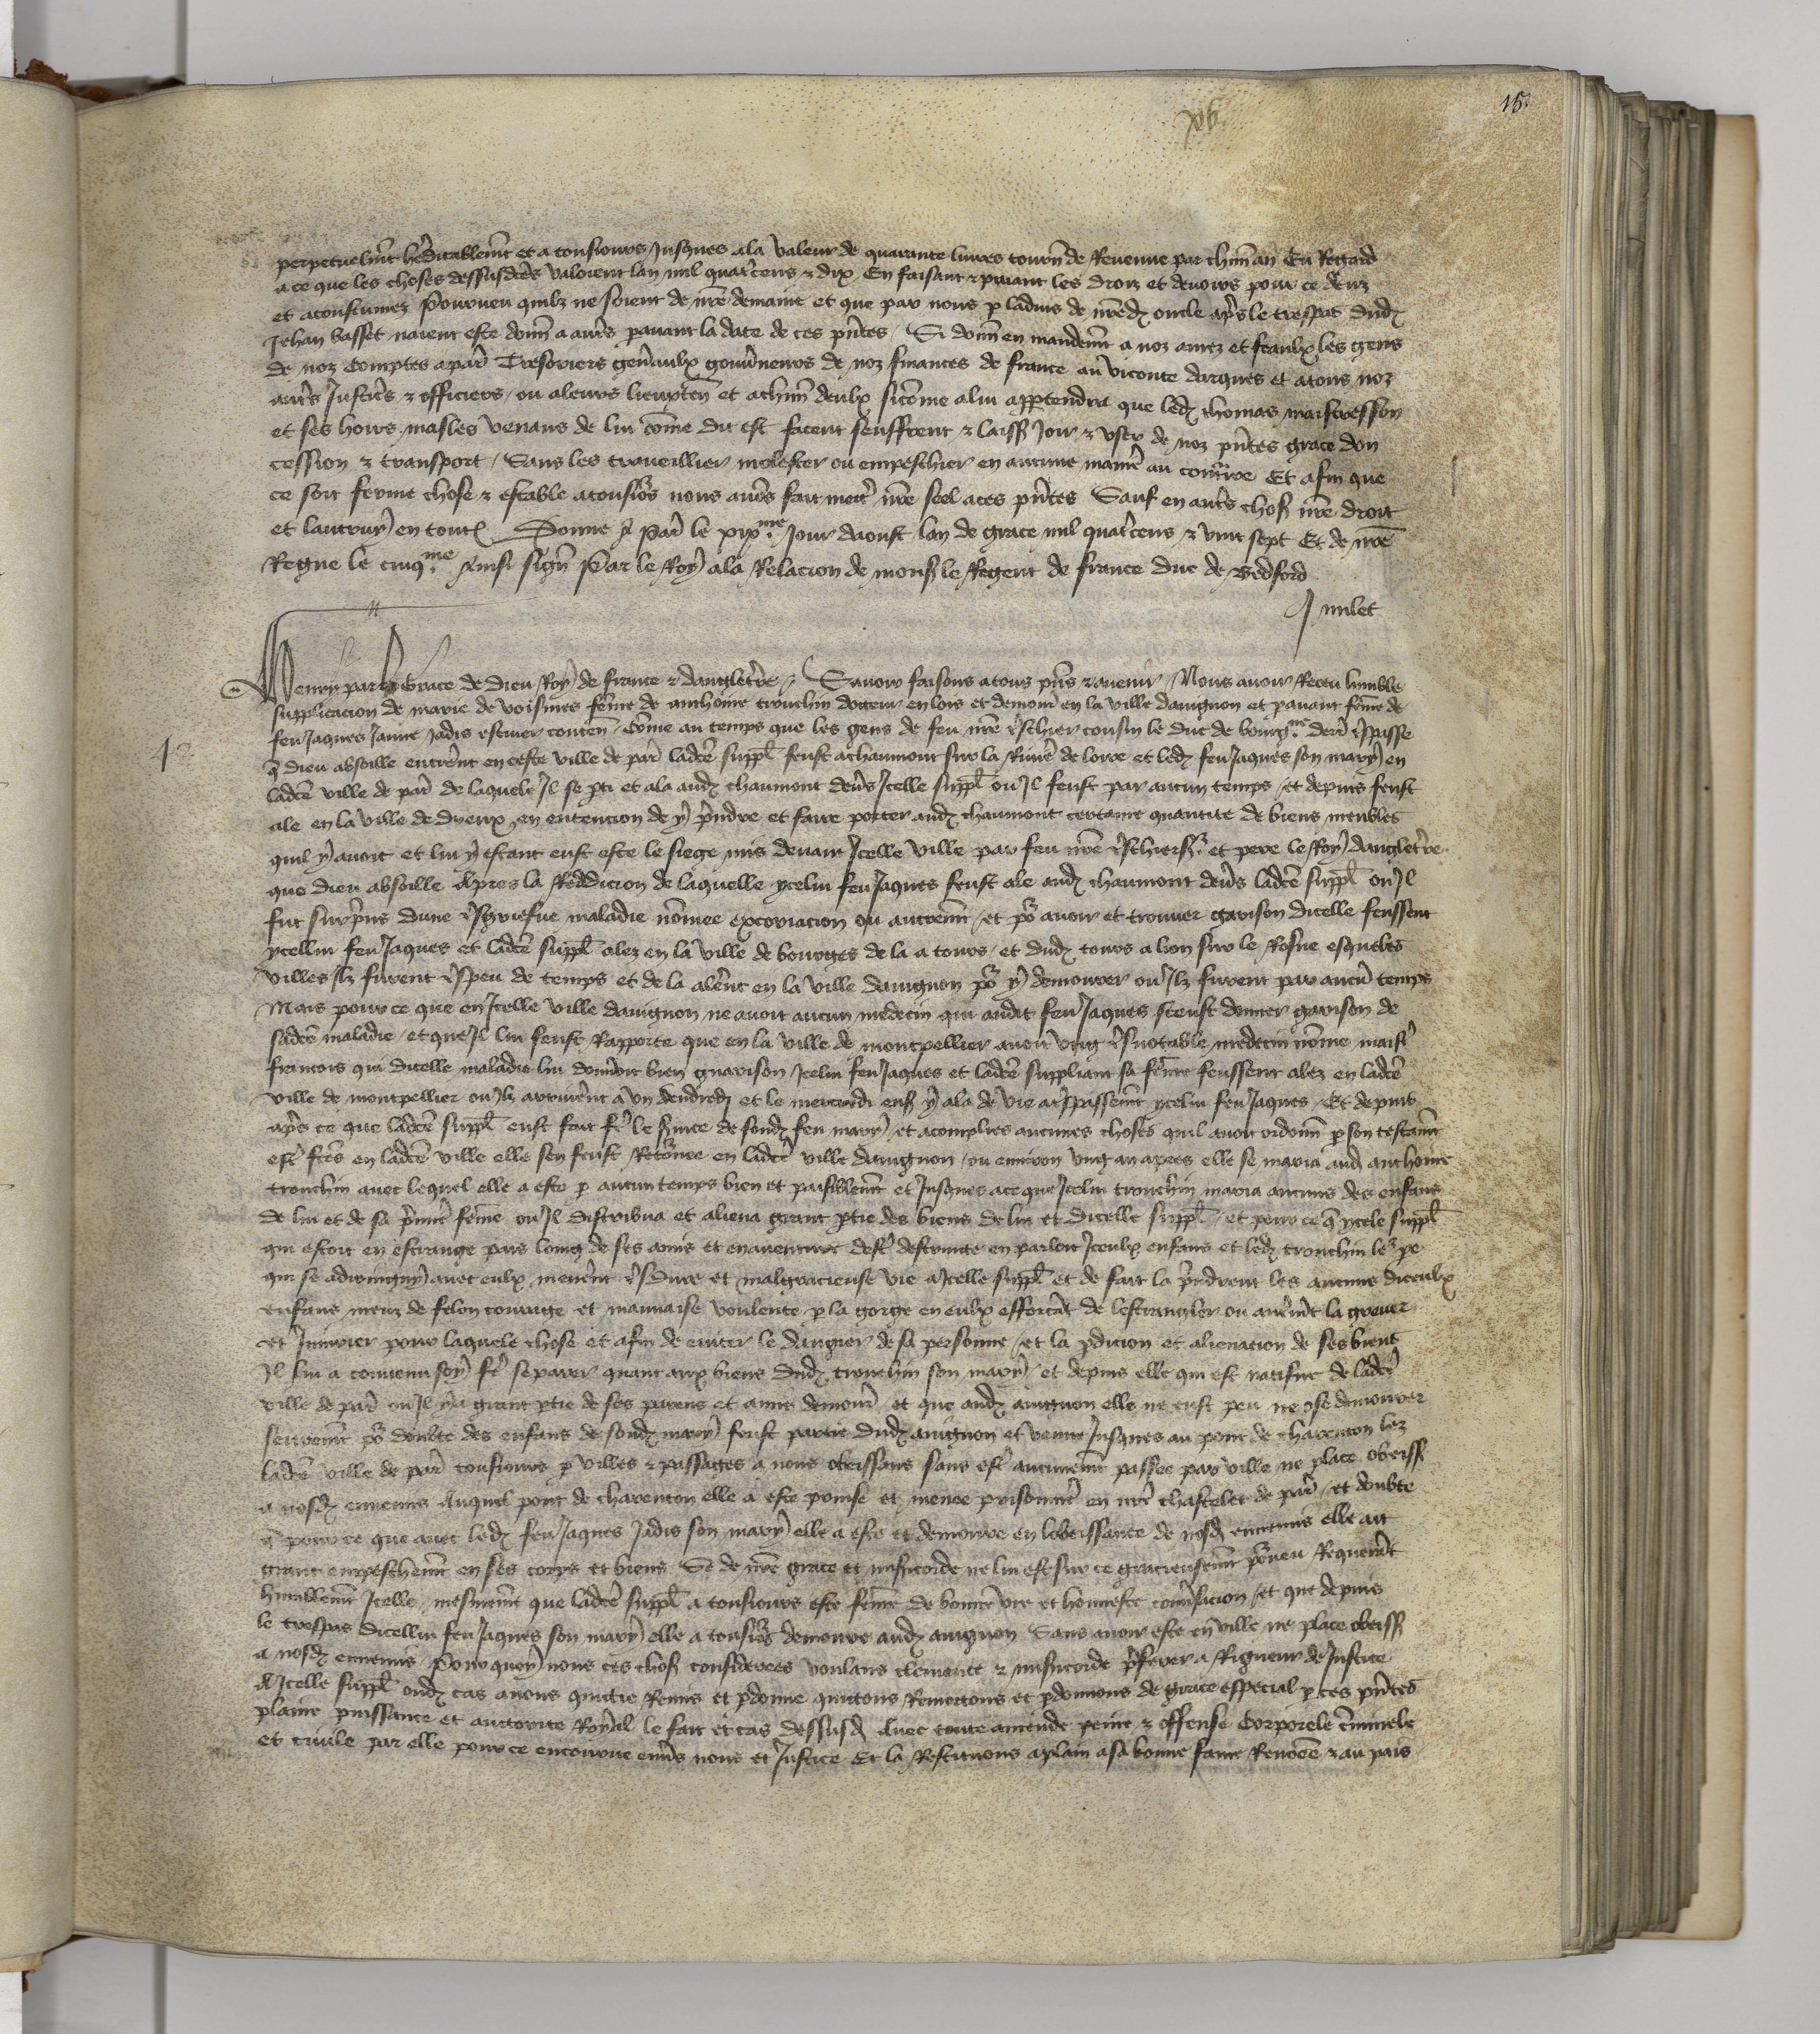 xv
15
perpetuelmt heditablemt et a tousiours Jusques ala valeur de quarante livres tourn de Revenue par chun an Eu Regard
a ce que les choses dessusdces valoient lan mil quatcens & dix En faisant & paiant les droiz et devoirs pour ce deuz
et acoustumez Pourveu quilz ne soient de nre demaine et que par nous p ladvis de nredz oncle aps le trespas dudz
Jehan basset naient este donn a autes pavant la date de ces pntes Si donn en mandemt a noz amez et feaulx les gens
de noz comptes a pars Tresoriers genaulx gouvneurs de noz finances de france au viconte darques et atous noz
autes Justices & officiers ou aleurs lieuxten et achun deulx sicome alui apptendra que ledz thomas maistresson
et ses hoirs masles venans de lui come dit est facent seuffrent & laiss Joir & user de noz pntes grace don
cession & transport Sans les traveillier molester ou empeschier en aucune manie au contraire Et afin que
ce soit ferme chose & estable atousios nous avos fait mett nre seel aces pntes Sauf en autes chos nre droit
et lautruy en toutes Donne a Pars le xixme Jour daoust lan de grace mil quatcens & vint sept Et de nre
Regne le cinqme Ainsi sign Par le Roy ala Relacion de mons le Regent de france duc de Bedford
J milet
Henry par la Grace de Dieu Roy de france & dangletre Savoir faisons atous pns & avenir Nous avoir Receu lumble
supplicacion de marie de voisines feme de anthoine tronchin docteur en lois et demour en la ville davignon et pavant feme de
feu Jaques Jadis conten come au temps que les gens de feu nre tschier cousin le duc de bourgme derr tspasse
13
q dieu absoille entrent en ceste ville de pars ladce suppl feust achaumont sur la Rivie de loire et ledz feu Jaques son mary en
ladce ville de pars de laquele Jl se pti et ala audz chaumont devs Jcelle suppl ou Jl feust par aucun temps et depuis feust
ale en la ville de dreux en entencion de y prendre et faire porter audz chaumont certaine quantite de biens meubles
quil y avoit et lui y estant eust este le siege mis devant Jcelle ville par feu nre tschiers et pere le Roy dangletre
que dieu absoille Apres la Reddicion de laquelle ycelui feu Jaques feust ale audz chaumont devs ladce suppl ou Jl
fut surpris dune tsgriefve maladie nomee excoriacion ou autremt et por avoir et trouver garison dicelle feussent
ycellui feu Jaques et ladce suppl alez en la ville de bourges de la a tours et dudz tours a lion sur le Rosne esqueles
villes Jlz furent tspeu de temps et de la alent en la ville davignon por y demourer ou Jlz furent par aucun temps
Mais pour ce que en Jcelle ville davignon ne avoit aucun medecin qui audit feu Jaques sceust donner garison de
sadce maladie et que Jl lui feust Rapporte que en la ville de montpellier avoit ung tsnotable medecin nome maist
francois qui dicelle maladie lui donroit bien guarison Jcelui feu Jaques et ladce suppliant sa feme feussent alez en ladce
ville de montpellier ou Jlz arrivent a un vendredi et le mercredi ens y ala de vie a tspassemt ycelui feu Jaques Et depuis
aps ce que ladce suppl eust fait fe le svice de sondz feu mary et acomplies aucunes choses quil avoit ordonn p son testamt
est fces en ladce ville elle sen feust Retornee en ladce ville davignon ou environ ung an apres elle se maria audz anthoine
tronchin avec lequel elle a este p aucun temps bien et paisiblemt et Jusques ace que Jcelui tronchin maria aucuns des enfans
de lui et de sa pmie feme ou Jl distribua et aliena grant ptie des biens de lui et dicelle suppl et pour ce q ycele suppl
qui estoit en estrange pais loing de ses amis et en aventure dest destruicte en parloit Jceulx enfans et ledz tronchin le pe
qui se adioingny avec eulx menent tsdure et malgracieuse vie a Jcelle suppl et de fait la prindrent les aucuns diceulx
enfans meuz de felon courage et mauvaise voulente p la gorge en eulx efforcant de lestrangler ou autremt la grever
et Jniurier pour laquele chose et afin de eviter le dangier de sa personne et la pdicion et alienacion de ses biens
Jl lui a convenu soy fe separer quant aux biens dudz tronchin son mary et depuis elle qui est natifve de ladce
ville de pars ou Jl y a grant ptie de ses parens et amis demour et que audz avignon elle ne eust peu ne ose demourer
seuremt por doubte des enfans de sondz mary feust partie dudz avignon et venue Jusques au pont de charenton lez
ladce ville de pars tousiours p villes & passages a nous obeissans sans est aucunemt passee par ville ne place obeiss
a nosdz ennemis Auquel pont de charenton elle a este prinse et menee prisonnie en nre chastelet de pars et doubte
q pour ce que avec ledz feu Jaques Jadis son mary elle a este et demoure en lobeissance de nosdz ennemis elle ait
grant empeschemt en ses corps et biens Se de nre grace et misicorde ne lui est sur ce gracieusemt porveu Requerant
humblemt Jcelle mesmemt que ladce suppl a tousiours este feme de bonne vie et honneste convsacion et que depuis
le trespas dicellui feu Jaques son mary elle a tousios demoure audz avignon Sans avoir este en ville ne place obeiss
a nosdz ennemis Pour quoy nous ces chos considerees voulans clemence & misicorde pferer a Rigueur de Justice
A Jcelle suppl oudz cas avons quicte Remis et pdonne quictons Remectons et pdonnons de grace especial p ces pntes
plaine puissance et auctorite Royal le fait et cas dessusdz Avec toute amende peine & offense Corporele cminele
et civile par elle pour ce encourue envs nous et Justice Et la Restituons aplain asa bonne fame Renomee & au pais